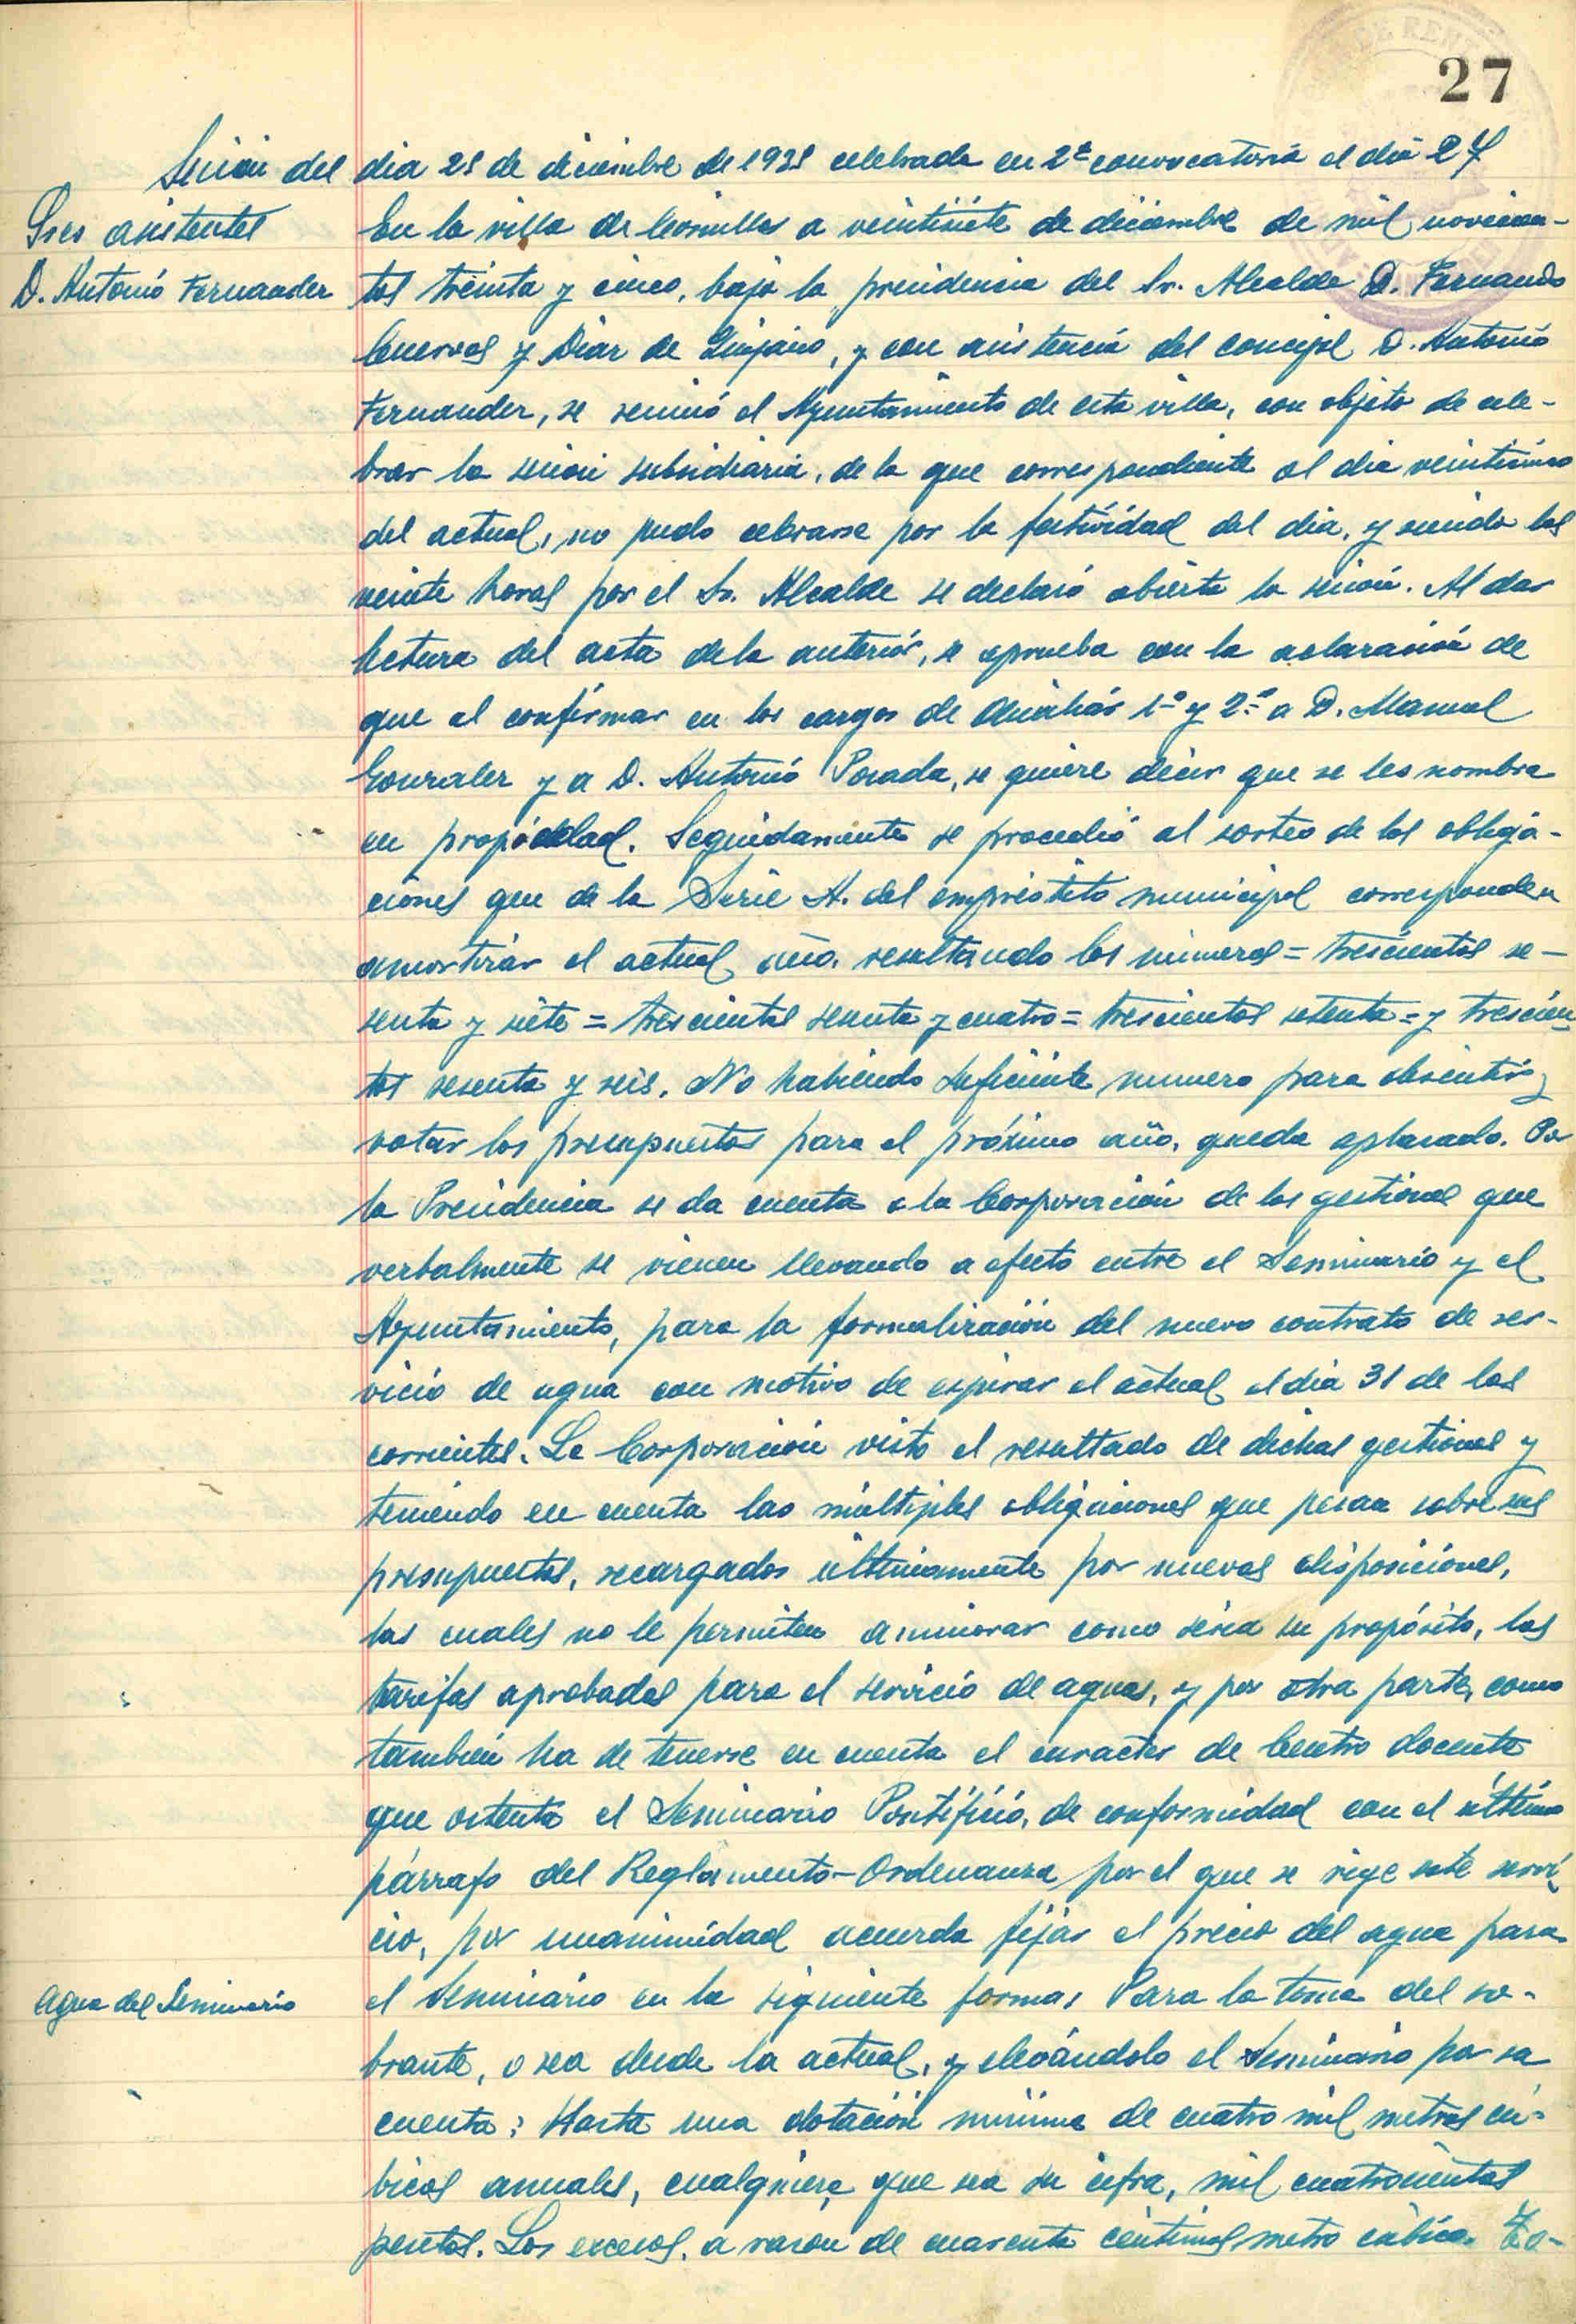 27
Sesión del dia 25 de diciembre de 1935 celebrada en 2ª convocatoria el dia 27
Sres asistentes
D. Antonio Fernandez
En la villa de Comillas a veintisiete de diciembre de mil novecien-
tos treinta y cinco, bajo la presidencia del Sr. Alcalde D. Fernando
Cuevas y Diaz de Quijano, y con asistencia del concejal D. Antonio
Fernandez, se reunió el Ayuntamiento de esta villa, con objeto de cele-
brar la sesión subsidiaria, de la que correspondiente al dia veinticinco
del actual, no pudo cebrarse por la festividad del dia, y siendo las
veinte horas por el Sr. Alcalde se declaró abierta la sesión. Al dar
lectura del acta de la anterior, se aprueba con la aclaración de
que al confirmar en los cargos de Auxiliar 1º y 2º a D. Manuel
Gonzalez y a D. Antonio Posada, se quiere decir que se les nombra
en propiedad. Seguidamente se procedió al sorteo de las obliga-
ciones que de la Serie A. del empréstito municipal corresponden
amortizar el actual año, resultando los números = trescientos se-
senta y siete = trescientos sesenta y cuatro = trescientos setenta = y trescien
tos sesenta y seis. No habiendo suficiente numero para discutir y
votar los presupuestos para el próximo año, queda aplazado. Por
la Presidencia se da cuenta a la Corporación de las gestiones que
verbalmente se vienen llevando a efecto entre el Seminario y el
Ayuntamiento, para la formalización del nuevo contrato de ser-
vicio de agua con motivo de expirar el actual el dia 31 de los
corrientes. La Corporación visto el resultado de dichas gestiones y
teniendo en cuenta las múltiples obligaciones que pesan sobre sus
presupuestos, recargados ultimamente por nuevas disposiciones,
las cuales no le permiten aminorar como seria su propósito, las
tarifas aprobadas para el servicio de aguas, y por otra parte, como
también ha de tenerse en cuenta el caracter de Centro docente
que ostenta el Seminario Pontificio, de conformidad con el último
párrafo del Reglamento-Ordenanza por el que se rige este servi
cio, por unanimidad acuerda fijar el precio del agua para
Agua del Seminario
el Seminario en la siguiente forma: Para la toma del so-
brante, o sea desde la actual, y elevándolo el Seminario por su
cuenta: Hasta una dotación minima de cuatro mil metros cú-
bicos anuales, cualquiera que sea su cifra, mil cuatrocientas
pesetas. Los excesos, a razon de cuarenta céntimos metro cúbico. To-